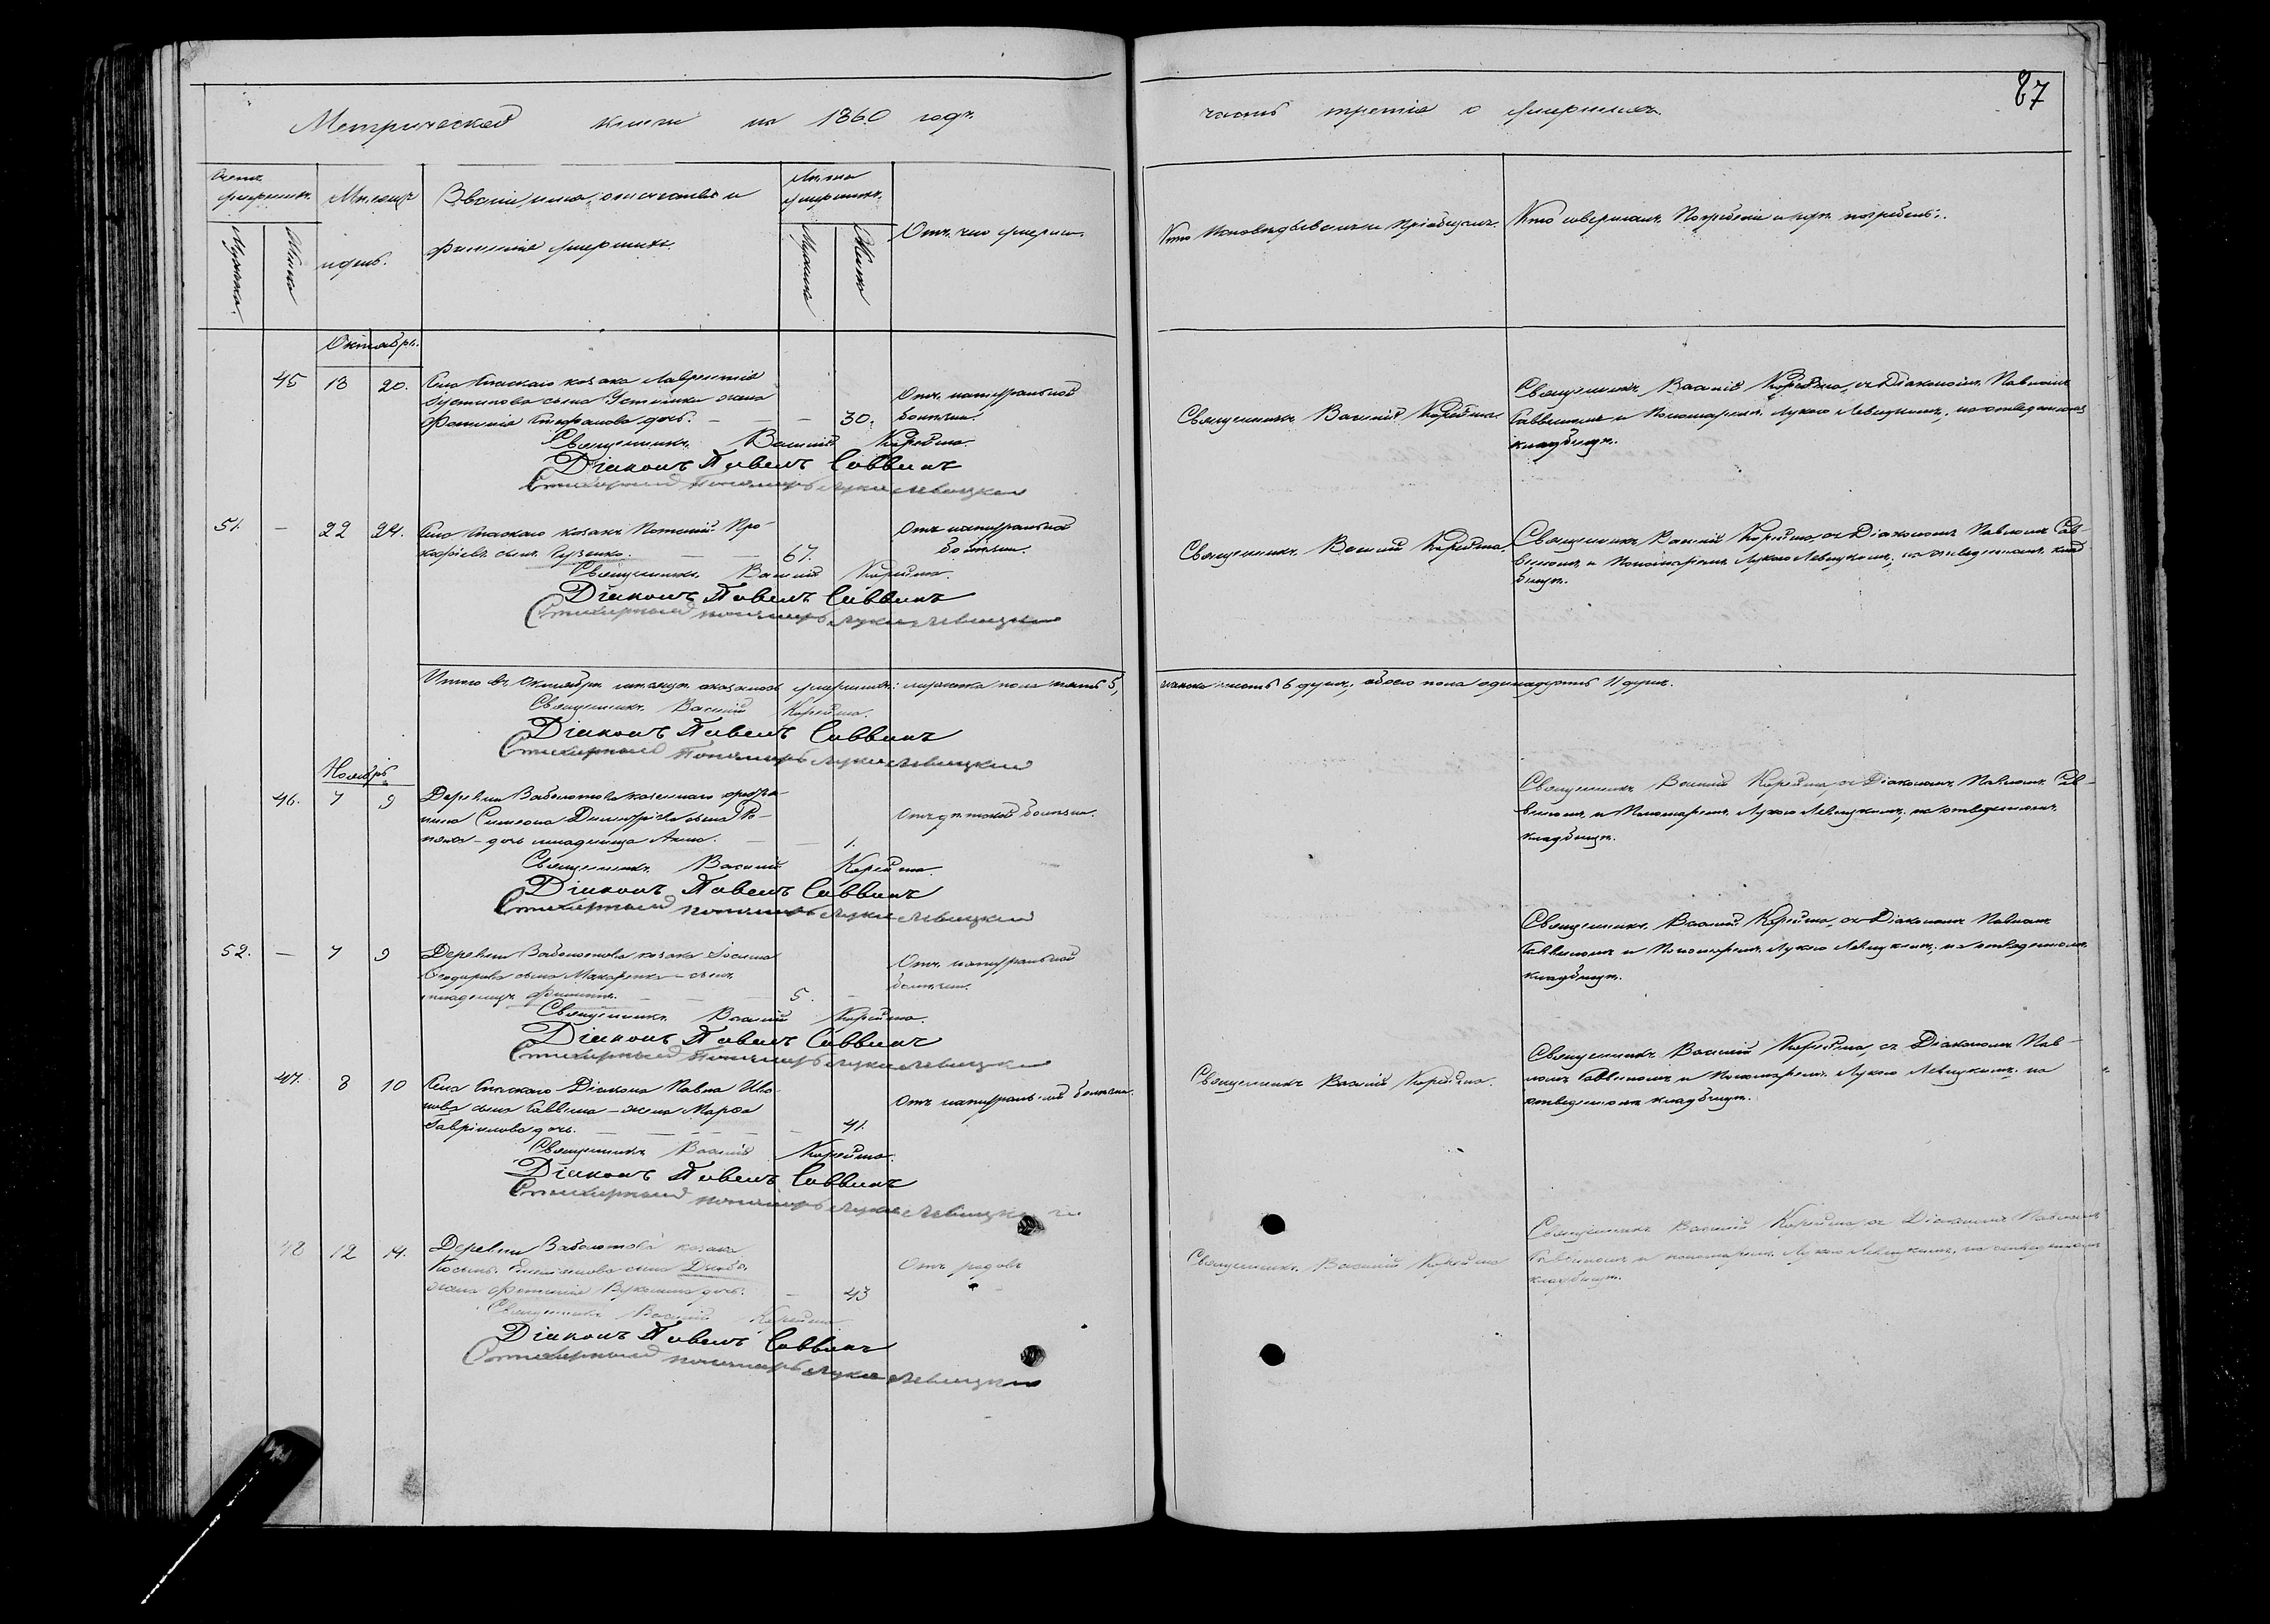 87
Метрической книги на 1860 годъ
часть третія о умершихъ.
Счетъ умершихъ.
Мужеска.
Женска
Мѣсяцъ и день.
Званіе, имя, отчество и фамилія умершихъ.
Лѣта умершихъ.
Мужска
Женска
Отъ чего умеръ.
Кто исповѣдывалъ и пріобщалъ.
Кто совершалъ погребеніе и гдѣ погребены.
Октябрь.
45 18 20. Села Спаскаго козака Лаврентія
сына Устимка жена
Стефанова дочь. — — — 30.
Отъ натуральной
болѣзни.
Священникъ Василій Корейша
Священникъ Василій Корейша, съ Діакономъ Павломъ
Саввинымъ и Пономаремъ Лукою Левицкимъ, на отведенномъ
кладбищѣ.
Священникъ Василій Корейша.
Діаконъ Павелъ Саввинъ
Стихарный Пономарь Лука Левицкий
51. — 22 24. Села Спаскаго козакъ Про-
кофіевъ сынъ Гузенко. — — 67.
Отъ натуральной
болѣзни.
Священникъ Василій Корейша.
Священникъ Василій Корейша, съ Діакономъ Павломъ Сав-
винымъ и Пономаремъ Лукою Левицкимъ, на отведенномъ клад-
бищѣ.
Священникъ Василій Корейша.
Діаконъ Павелъ Саввинъ
Стихарный пономарь Лука Левицкий
Итого въ Октябрѣ мѣсяцѣ оказалось умершихъ: мужеска пола пять 5,
женска шесть 6 душъ, обоего пола одинадцать 11 душъ.
Священникъ Василій Корейша.
Діаконъ Павелъ Саввинъ
Стихарный Пономарь Лука Левицкий
Ноябрь
46. 7 9 Деревни Заболотова казеннаго крестья-
нина Симеона Димитріева сына
дочь младеница Анна. — — 1.
Отъ дѣтской болѣзни.
Священникъ Василій Корейша, съ Діакономъ Павломъ Сав-
винымъ и Пономаремъ Лукою Левицкимъ, на отведенномъ
кладбищѣ.
Священникъ Василій Корейша.
Діаконъ Павелъ Саввинъ
Стихарный пономарь Лука Левицкий
52. — 7 9 Деревни Заболотова козака
Феодорова сына Макаренка — сынъ
младенецъ Филиппъ. — — 5. —
Отъ натуральной
болѣзни.
Священникъ Василій Корейша, съ Діакономъ Павломъ
Саввинымъ и Пономаремъ Лукою Левицкимъ, на отведенномъ
кладбищѣ.
Священникъ Василій Корейша.
Діаконъ Павелъ Саввинъ
Стихарный Пономарь Лука Левицкий
47. 8 10 Села Спаскаго Діакона Павла Ива-
нова сына Саввина — жена Марфа
Гавріилова дочь. — — — 41.
Отъ натуральной болѣзни.
Священникъ Василій Корейша.
Священникъ Василій Корейша, съ Діакономъ Пав-
ломъ Саввинымъ и Пономаремъ Лукою Левицкимъ, на
отведенномъ кладбищѣ.
Священникъ Василій Корейша.
Діаконъ Павелъ Саввинъ
Стихарный пономарь Лука Левицкий
48 12 14. Деревни Заболотова козака
сына
жена дочь. — 43
Отъ родовъ
Священникъ Василій Корейша
Священникъ Василій Корейша, съ Діакономъ Павломъ
Саввинымъ и пономаремъ Лукою Левицкимъ, на отведенномъ
кладбищѣ.
Священникъ Василій Корейша
Діаконъ Павелъ Саввинъ
Стихарный пономарь Лука Левицкий